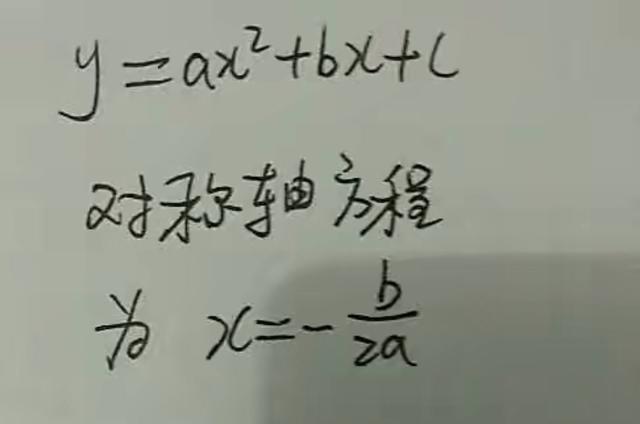 y=ax²+bx+c
对称轴方程
为 x=-b/2a